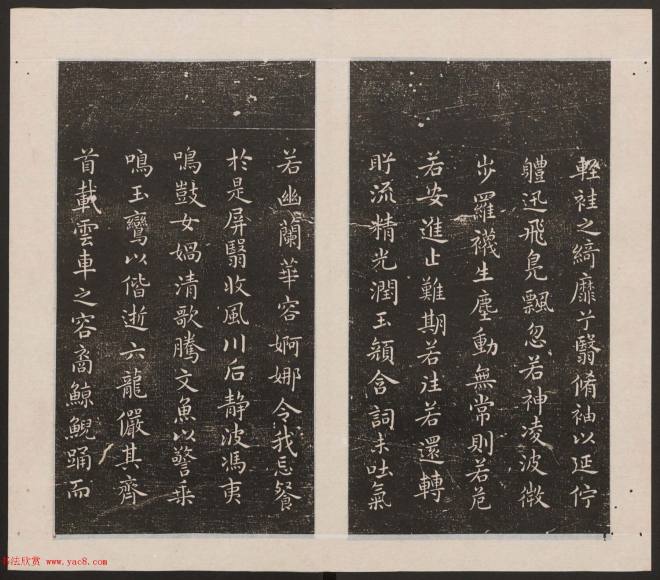 輕袿之綺靡兮翳脩袖以延佇
軆迅飛鳧飄忽若神凌波微
步羅襪生塵動無常則若危
若安進止難期若往若還轉
眄流精光潤玉顏含詞未吐氣
若幽蘭華容婀娜令我忘餐
於是屏翳收風川后静波馮夷
鳴鼓女媧清歌騰文魚以警乗
鳴玉鸞以偕逝六龍儼其齊
首載雲車之容裔鯨鯢踊而
书法欣赏 www.yac8.com